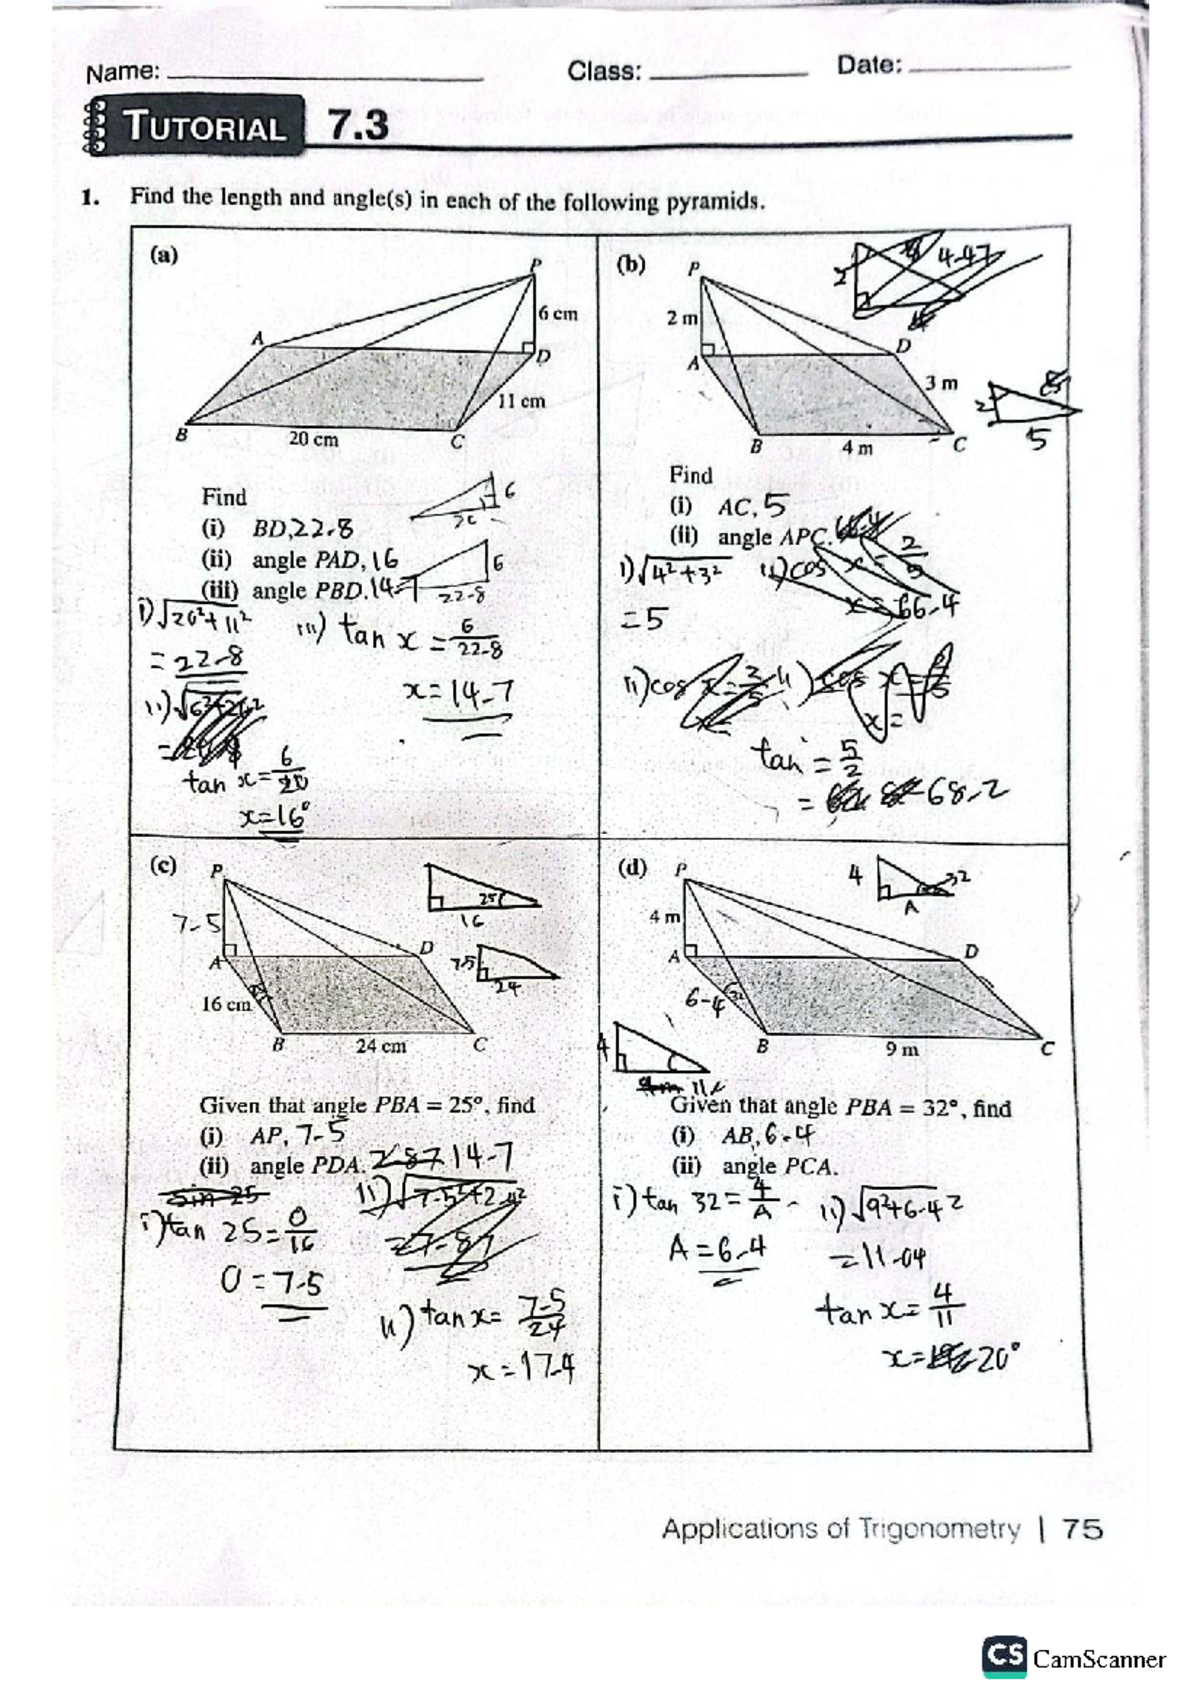 Name: Class: Date:
TUTORIAL 7.3
1. Find the length and angle(s) in each of the following pyramids.
(a)
P
6 cm
A
D
11 cm
B
20 cm
C
6
Find
(i) BD, 22.8
(ii) angle PAD, 16
(iii) angle PBD. 14.7
6
22.8
i) √20²+11²
= 22.8
iii) tan x = 6/22.8
x = 14.7
tan x = 6/20
x = 16°
(b)
P
2
4.47
2 m
A
D
3 m
2
5
B
4 m
C
Find
(i) AC, 5
(ii) angle APC.
i) √4²+3²
= 5
tan = 5/2
= 68.2
(c)
P
25
16
7.5
A
D
7.5
24
16 cm
B
24 cm
C
Given that angle PBA = 25°, find
(i) AP, 7.5
(ii) angle PDA. 14.7
i) tan 25 = O/16
O = 7.5
ii) tan x = 7.5/24
x = 17.4
(d)
P
4
32
A
4 m
A
D
6.4
32
4
B
9 m
C
Given that angle PBA = 32°, find
(i) AB, 6.4
(ii) angle PCA.
i) tan 32 = 4/A
A = 6.4
ii) √9²+6.4²
= 11.04
tan x = 4/11
x = 20°
Applications of Trigonometry | 75
CS CamScanner